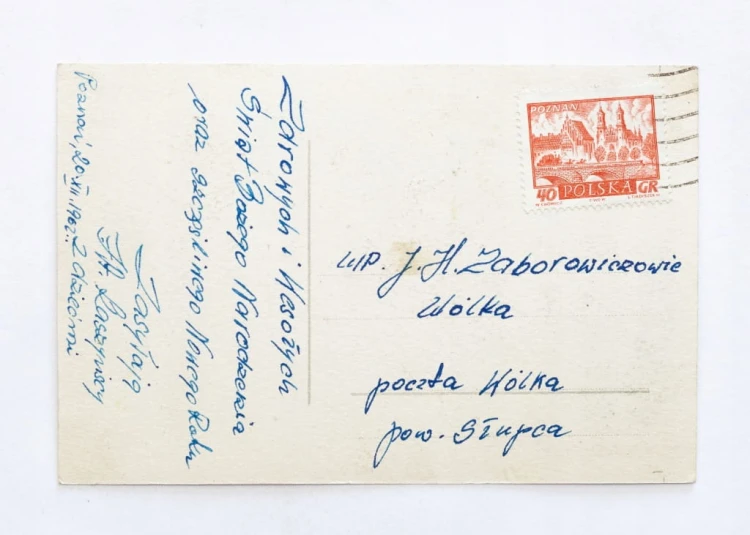 Zdrowych i Wesołych
Świąt Bożego Narodzenia
oraz szczęśliwego Nowego Roku
Zasyłają
Z dziećmi
Poznań, 20.XII.1962r.
POZNAŃ
40 POLSKA GR
WP. J. H. Zaborowiczowie
Wólka
poczta Wólka
pow. Słupca